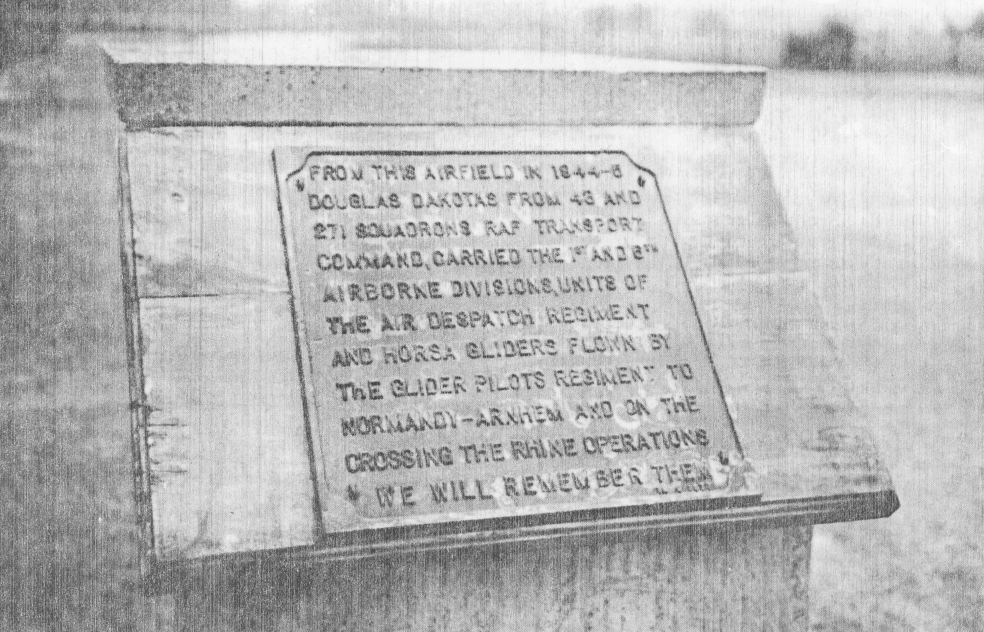 FROM THIS AIRFIELD IN 1944-5
DOUGLAS DAKOTAS FROM 48 AND
271 SQUADRONS RAF TRANSPORT
COMMAND, CARRIED THE 1ST AND 6TH
AIRBORNE DIVISIONS, UNITS OF
THE AIR DESPATCH REGIMENT
AND HORSA GLIDERS FLOWN BY
THE GLIDER PILOTS REGIMENT TO
NORMANDY-ARNHEM AND ON THE
CROSSING THE RHINE OPERATIONS
WE WILL REMEMBER THEM